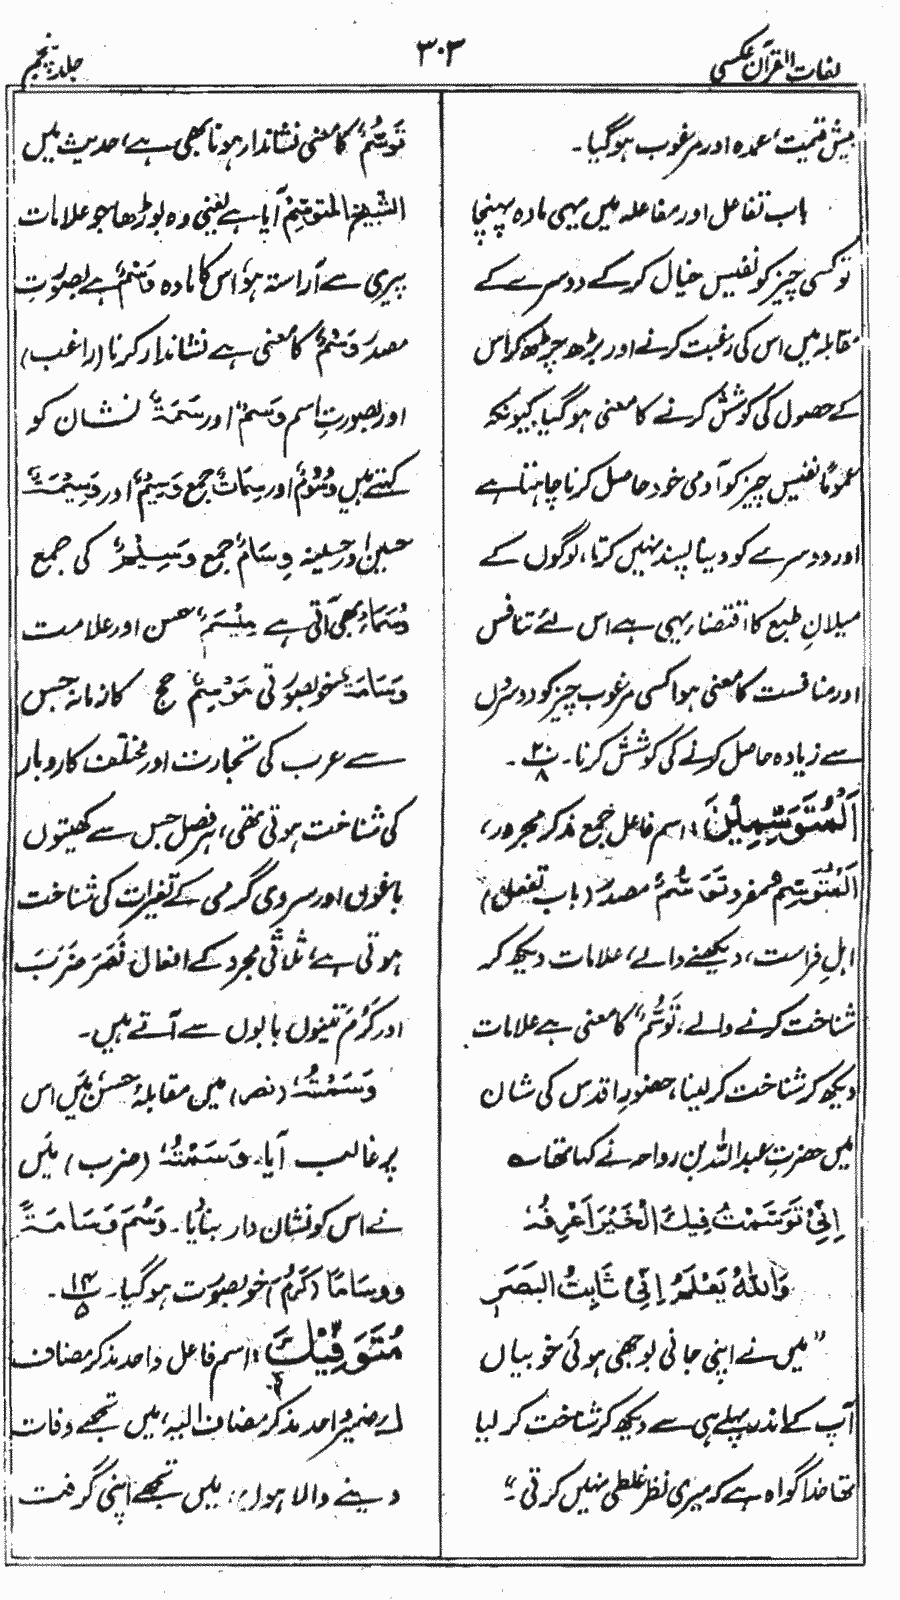 لغات القرآن عکسی
۳۰۳
جلد پنجم
بیش قیمت، عمدہ اور مرغوب ہوگیا۔
باب تفاعل اور مفاعلہ میں یہی مادہ پہنچا
تو کسی چیز کو نفیس خیال کرکے دوسرے کے
مقابلہ میں اس کی رغبت کرنے اور بڑھ چڑھ کر اس
کے حصول کی کوشش کرنے کا معنی ہوگیا، کیونکہ
عموماً نفیس چیز کو آدمی خود حاصل کرنا چاہتا ہے
اور دوسرے کو دینا پسند نہیں کرتا، لوگوں کے
میلانِ طبع کا اقتضاء یہی ہے اس لئے تنافس
اور منافست کا معنی ہوا کسی مرغوب چیز کو دوسروں
سے زیادہ حاصل کرنے کی کوشش کرنا۔ پ ۳۰ ۸ ۔
اَلْمُتَوَسِّمِیْنَ: اسم فاعل جمع مذکر مجرور،
اَلْمُتَوَسِّمُ مفرد تَوَسُّمٌ مصدر (باب تفعل)
اہلِ فراست، دیکھنے والے، علامات دیکھ کر
شناخت کرنے والے، تَوَسُّمٌ کا معنی ہے علامات
دیکھ کر شناخت کر لینا، حضورِ اقدس کی شان
میں حضرت عبداللہ بن رواحہ نے کہا تھا ؎
اِنِّیْ تَوَسَّمْتُ فِیْكَ الْخَیْرَ اَعْرِفُهٗ
وَاللّٰهُ یَعْلَمُ اِنِّیْ ثَابِتُ الْبَصَرِ
"میں نے اپنی جانی بوجھی ہوئی خوبیاں
آپ کے اندر پہلے ہی سے دیکھ کر شناخت کر لیا
تھا خدا گواہ ہے کہ میری نظر غلطی نہیں کرتی۔"
تَوَسُّمٌ کا معنی نشاندار ہونا بھی ہے، حدیث میں
الشیخ المتوسّم آیا ہے یعنی وہ بوڑھا جو علامات
پیری سے آراستہ ہو، اس کا مادہ وَسْمٌ ہے بصورتِ
مصدر وَسْمٌ کا معنی ہے نشاندار کرنا (راغب)
اور بصورتِ اسم وَسْمٌ اور سِمَةٌ نشان کو
کہتے ہیں وُسُوْمٌ اور سِمَاتٌ جمع وَسِیْمٌ اور وَسِیْمَةٌ
حسین اور حسینہ وِسَامٌ جمع وَسِیْمٌ کی جمع
وُسَمَاءُ بھی آتی ہے مِیْسَمٌ، حسن اور علامت
وَسَامَةٌ خوبصورتی مَوْسِمٌ حج کا زمانہ جس
سے عرب کی تجارت اور مختلف کاروبار
کی شناخت ہوتی تھی، ہر فصل جس سے کھیتوں
باغوں اور سردی گرمی کے تغیرات کی شناخت
ہوتی ہے، ثلاثی مجرد کے افعال نَصَرَ ضَرَبَ
اور كَرُمَ تینوں بابوں سے آتے ہیں۔
وَسَمْتُهٗ (نصر) میں مقابلۂ حسن میں اس
پر غالب آیا۔ وَسَمْتُهٗ (ضرب) میں
نے اس کو نشان دار بنایا۔ وَسُمَ وَسَامَةً
ووسَامًا (كَرُمَ) خوبصورت ہوگیا۔ پ ۱۴ ۵ ۔
مُتَوَفِّیْكَ: اسم فاعل واحد مذکر مضاف
ك ضمیر واحد مذکر مضاف الیہ، میں تجھے وفات
دینے والا ہوں، میں تجھے اپنی گرفت